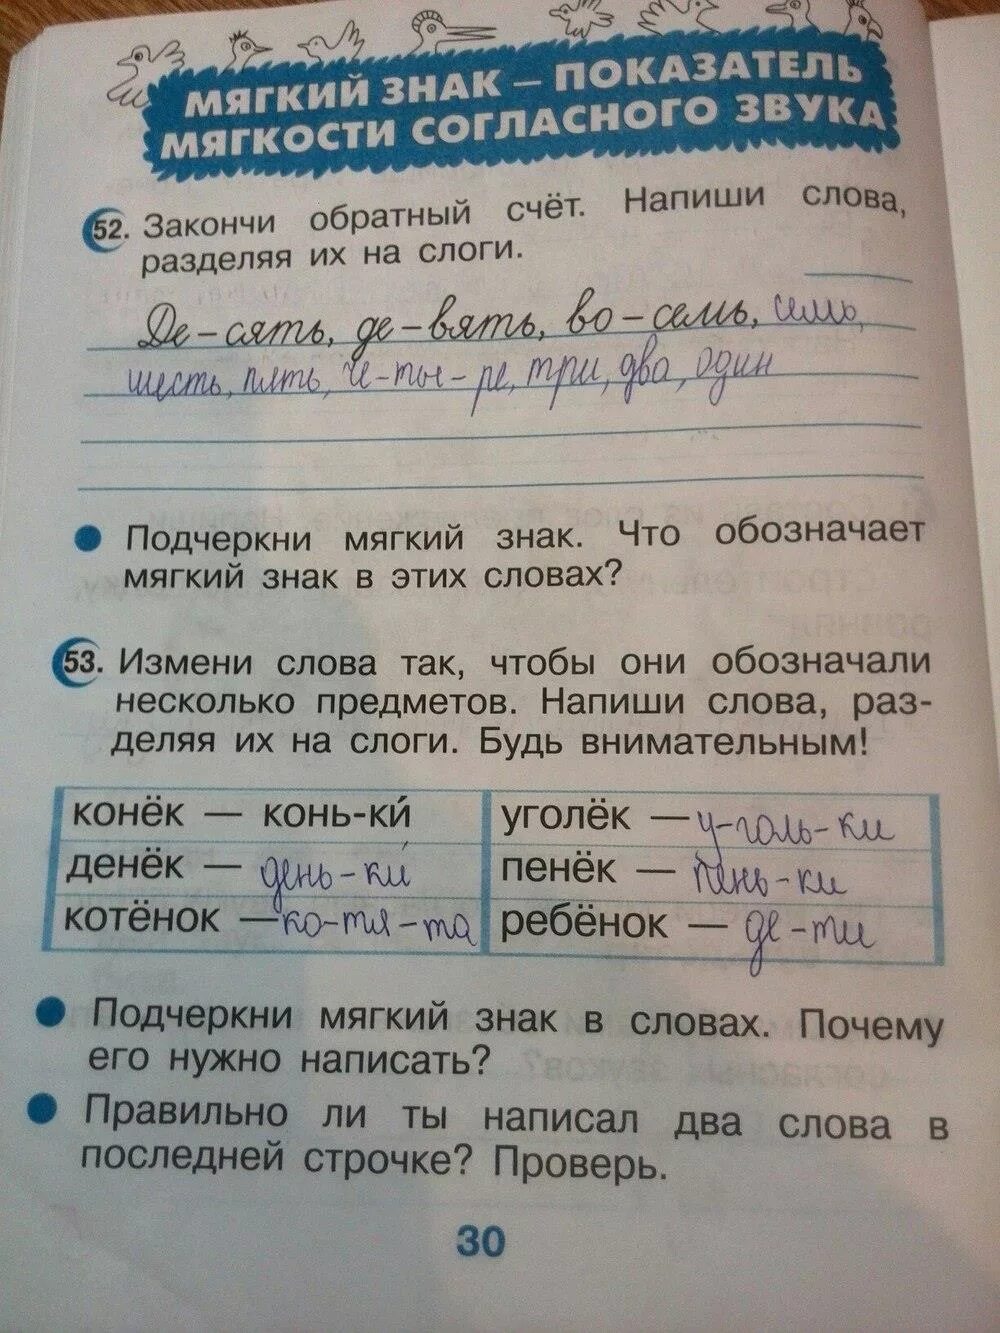 МЯГКИЙ ЗНАК – ПОКАЗАТЕЛЬ
МЯГКОСТИ СОГЛАСНОГО ЗВУКА
52. Закончи обратный счёт. Напиши слова,
разделяя их на слоги.
Де-сять, де-вять, во-семь, семь,
шесть, пять, че-ты-ре, три, два, один
Подчеркни мягкий знак. Что обозначает
мягкий знак в этих словах?
53. Измени слова так, чтобы они обозначали
несколько предметов. Напиши слова, раз-
деляя их на слоги. Будь внимательным!
конёк — конь-ки́ уголёк — у-голь-ки
денёк — день-ки́ пенёк — пень-ки
котёнок — ко-тя-та ребёнок — де-ти
Подчеркни мягкий знак в словах. Почему
его нужно написать?
Правильно ли ты написал два слова в
последней строчке? Проверь.
30